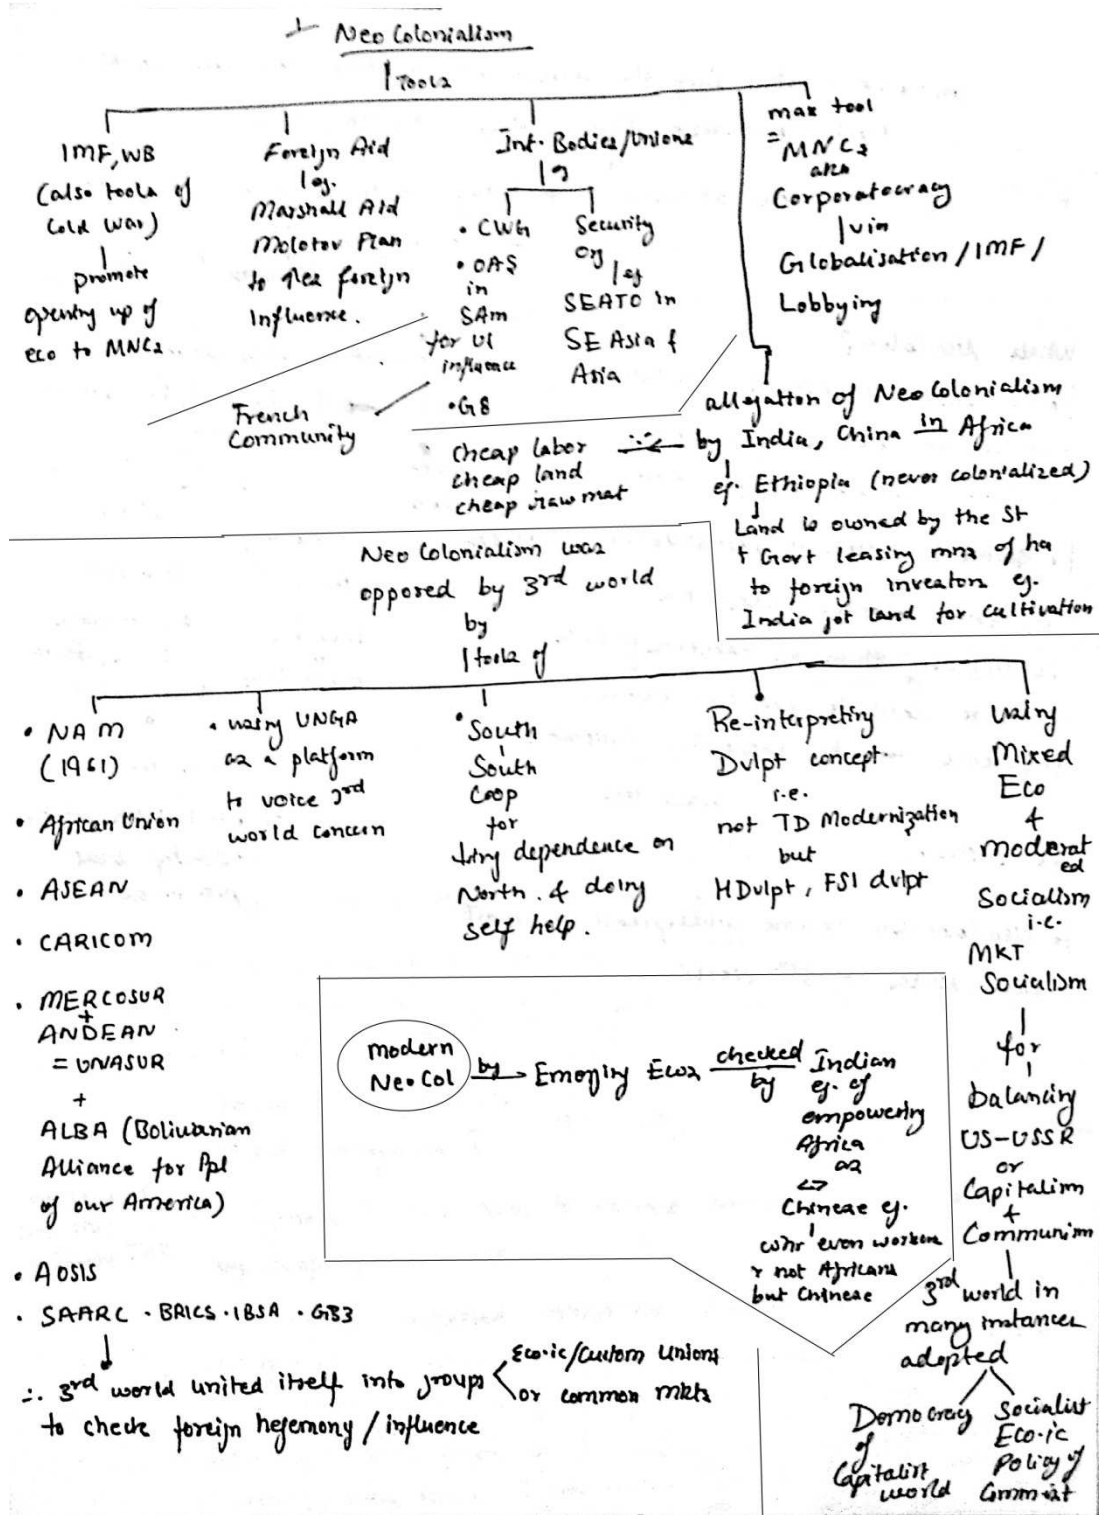 Neo Colonialism
Tools
IMF, WB
(also tools of
Cold War)
promote
opening up of
eco to MNCs
Foreign Aid
eg.
Marshall Aid
Molotov Plan
to ↑se foreign
Influence.
Int. Bodies/Unions
eg
• CWG
• OAS
in
SAm
for US
influence
• G8
French
Community
Security
org
eg
SEATO in
SE Asia &
Asia
max tool
= MNCs
aka
Corporatocracy
via
Globalisation/IMF/
Lobbying
allegation of Neo Colonialism
by India, China in Africa
∵
cheap labor
cheap land
cheap raw mat
eg. Ethiopia (never colonialized)
Land is owned by the St
& Govt leasing mns of ha
to foreign investors eg.
India got land for cultivation
Neo Colonialism was
opposed by 3rd world
by
tools of
• NAM
(1961)
• African Union
• ASEAN
• CARICOM
• MERCOSUR
+
ANDEAN
= UNASUR
+
ALBA (Bolivarian
Alliance for Ppl
of our America)
• AOSIS
• SAARC • BRICS • IBSA • G33
∴ 3rd world united itself into groups
to check foreign hegemony/influence
Eco.ic/Custom Unions
or common mkts
• using UNGA
as a platform
to voice 3rd
world concern
• South
South
Coop
for
↓ing dependence on
North. & doing
self help.
Re-interpreting
Dvlpt concept
i.e.
not TD Modernization
but
HDvlpt, FSI dvlpt
Using
Mixed
Eco
&
moderat
ed
Socialism
i.e.
MKT
Socialism
for
balancing
US-USSR
or
Capitalism
&
Communism
3rd world in
many instances
adopted
Democracy
of
Capitalist
world
Socialist
Eco.ic
Policy of
Commist
modern
Neo Col
by
Emerging Ecos
checked
by
Indian
eg. of
empowering
Africa
as
<->
Chinese eg.
whr even workers
r not Africans
but Chinese